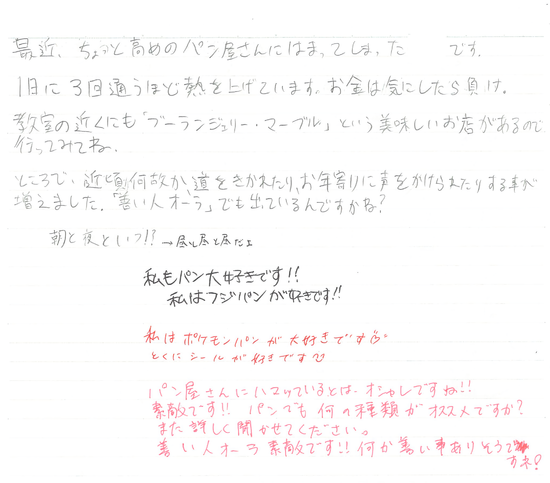 最近、ちょっと高めのパン屋さんにはまってしまった です。
1日に3回通うほど熱を上げています。お金は気にしたら負け。
教室の近くにも「ブーランジュリー・マーブル」という美味しいお店があるので
行ってみてね。
ところで、近頃何故か、道をきかれたり、お年寄りに声をかけられたりする事が
増えました。「善い人オーラ」でも出ているんですかね?
朝と夜といつ!?→昼と昼と昼だよ
私もパン大好きです!!
私はフジパンが好きです!!
私はポケモンパンが大好きです
とくにシールが好きです
パン屋さんにハマっているとは、オシャレですね!!
素敵です!! パンでも何の種類がオススメですか?
また詳しく聞かせてください。
善い人オーラ素敵です!!何か善い事ありそうで
すネ!